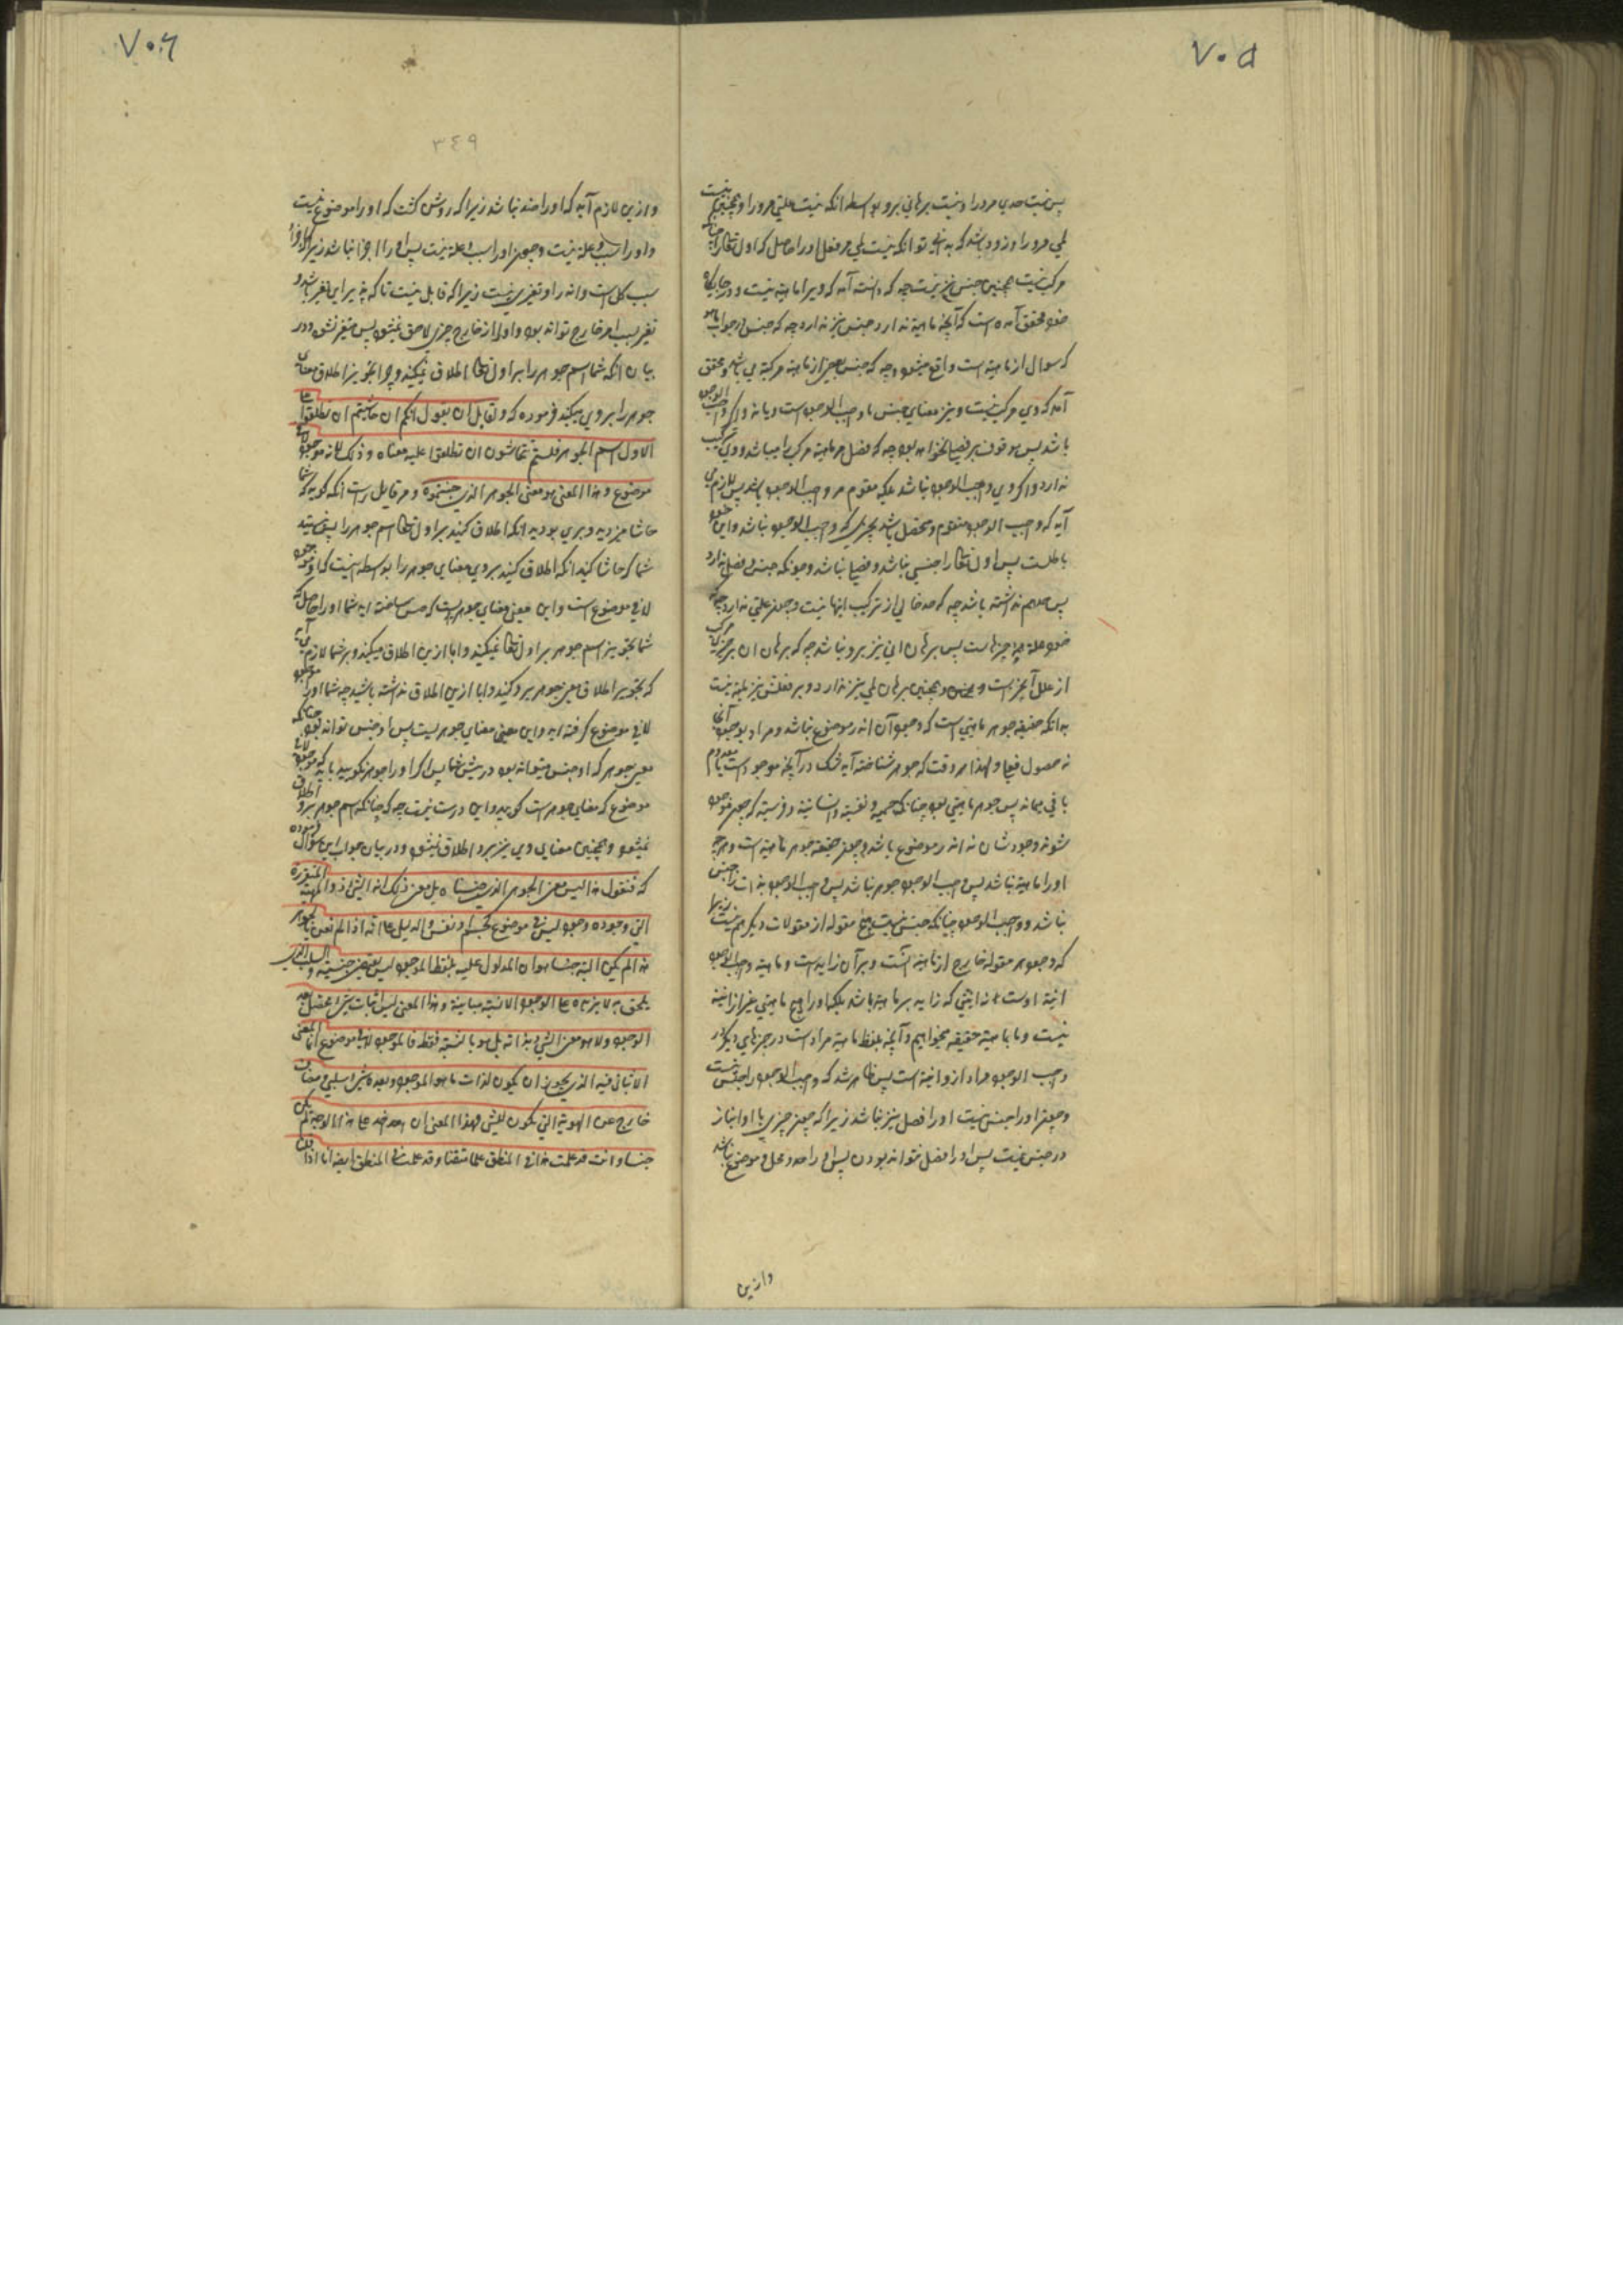 ۷۰۵
پس نیست حدی مر او را و نیست برهانی برو بواسطه انکه نیست علتی مر او را و همچنین نیست
لمی مر او را و زود باشد که بدانی تو انکه نیست لمی مر فعل او را حاصل که اول تعالی را چنانکه
مرکب نیست همچنین جنس نیز نیست چه که دانسته آمد که ویرا ماهیة نیست و در جایکه
خود محقق آمده است که آنچه ماهیة ندارد جنس نیز ندارد چه که جنس در جواب ماهو
که سوال از ماهیة است واقع میشود و چه که جنس بعض از ماهیة مرکبة می باشد و محقق
آمد که وی مرکب نیست و نیز معنای جنس یا واجب الوجود است و یا نه و اگر واجب الوجود
باشد پس موقوف بر فصل نخواهد بود چه که فصل مر ماهیة مرکب را میباشد و وی ترکیب
ندارد و اگر وی واجب الوجود نباشد بلکه مقوم مر واجب الوجود باشد پس لازم می
آید که واجب الوجود متقوم و محصل باشد بچیزی که واجب الوجود نباشد و این خود
باطلست پس اول تعالی را جنسی نباشد و فصلی نباشد و چونکه جنس و فصل ندارد
پس حد هم نداشته باشد چه که حد خالی از ترکیب اینها نیست و چون علتی ندارد چه که
خود علة همه چیزهاست پس برهان انی نیز برو نباشد چه که برهان ان بر چیزی مرکب
از علل آنچیز است و همچنین برهان لمی نیز ندارد و بر فعلش نیز لمیة نیست
بدانکه حقیقة جوهر ماهیتی است که وجود آن اندر موضوع نباشد و مراد بوجود آنجا
نه حصول فعلی و لهذا هر وقت که جوهر شناخته آید شک در آنچه موجود است یا معدوم
باقی بماند پس جوهر ماهیتی بود چنانکه جسمیة و نفسیة و انسانیة و فرسیة که چون موجود
شوند وجودشان نه اندر موضوع باشد و چون حقیقة جوهر ماهیة است و هرچه
او را ماهیة نباشد پس واجب الوجود جوهر نباشد پس واجب الوجود بذات را جنس
نباشد و واجب الوجود چنانکه جنس نیست هیچ مقوله از مقولات دیگر هم نیست زیرا
که وجود هر مقوله خارج از ماهیة آنست و بر آن زاید است و ماهیة واجب الوجود
انیة اوست نه انیتی که زاید بر ماهیة باشد بلکه او را هیچ ماهیتی غیر از انیة
نیست و ما بماهیة حقیقة میخواهیم و آنچه بلفظ ماهیة مراد است در چیزهای دیگر در
واجب الوجود مراد از و انیة است پس ظاهر شد که واجب الوجود را جنس نیست
و چون او را جنس نیست او را فصل نیز نباشد زیرا که چون چیزی با او انباز
در جنس نیست پس او را فصل نتواند بودن پس او را حد و محل و موضوع نباشد
وازین
۷۰۶
۳٤۹
و ازین لازم آید که او را ضد نباشد زیرا که روشن گشت که او را موضوع نیست
و او را سبب و علة نیست و چون او را سبب و علة نیست پس او را اجزا نباشد زیرا که اجزا
سبب کل است و اندر او تغیر نیست زیرا که قابل نیست تا که پذیرای تغیر باشد و
تغیر بسبب امر خارج تواند بود و او را از خارج چیزی لاحق نمیشود پس متغیر نشود و در
بیان انکه شما اسم جوهر را بر اول تعالی اطلاق نمیکنید و چرا تجویز اطلاق معنای
جوهر را بر وی میکنید فرموده که و لقایل ان یقول انکم ان تحاشیتم ان تطلقوا علی
الاول اسم الجوهر فلستم تتحاشون ان تطلقوا علیه معناه و ذلک لانه موجود لا فی
موضوع و هذا المعنی هو معنی الجوهر الذی جنستموه و مر قایل راست انکه گوید که شما
حاشا میزدید و بری بودید انکه اطلاق کنید بر اول تعالی اسم جوهر را پس نیستید
شما که حاشا کنید انکه اطلاق کنید بر وی معنای جوهر را بواسطه انیست که او موجود
لا فی موضوع است و این معنی معنای جوهریست که جنس ساخته اید شما او را حاصل که
شما تجویز اسم جوهر بر اول تعالی نمیکنید و ابا ازین اطلاق میکنید و بر شما لازم می آید
که تجویز اطلاق معنی جوهر برو کنید و ابا ازین اطلاق نداشته باشید چه شما او را موجود
لا فی موضوع گرفته اید و این معنی معنای جوهریست پس او جنس تواند بود چنانکه
معنی جوهر که او جنس میتواند بود در پیش شما پس اگر او را جوهر نگویید باید که موجود لا فی
موضوع که معنای جوهر است گویید و این درست نیست چه که چنانکه اسم جوهر برو اطلاق
نمیشود و همچنین معنای وی نیز برو اطلاق نمیشود و در بیان جواب این سوال فرموده
که فنقول هذا لیس معنی الجوهر الذی جنسناه بل معنی ذلک انه الشی ذو الماهیة المتقررة
التی وجوده وجود لیس فی موضوع کجسم او نفس و الدلیل علی انه اذا لم نعن بالجوهر
هذا لم یکن البتة جنسا هو ان المدلول علیه بلفظ الموجود لیس یقتضی جنسیته و السلب الذی
یلحق به لا یزیده علی الوجود الا نسبة مباینة و هذا المعنی لیس اثبات شی محصل بعد
الوجود و لا هو معنی الشی بذاته بل هو بالنسبة فقط فالموجود لا فی موضوع انما المعنی
الاثباتی فیه الذی یجوز ان یکون لذات ما هو الموجود و بعده شی سلبی و مضاف
خارج عن الهویة التی یکون للشی فهذا المعنی ان اخذ علی هذا الوجه لم یکن
جنسا و انت قد علمت هذا فی المنطق علما متقنا و قد علمت فی المنطق ایضا انا اذا قلنا